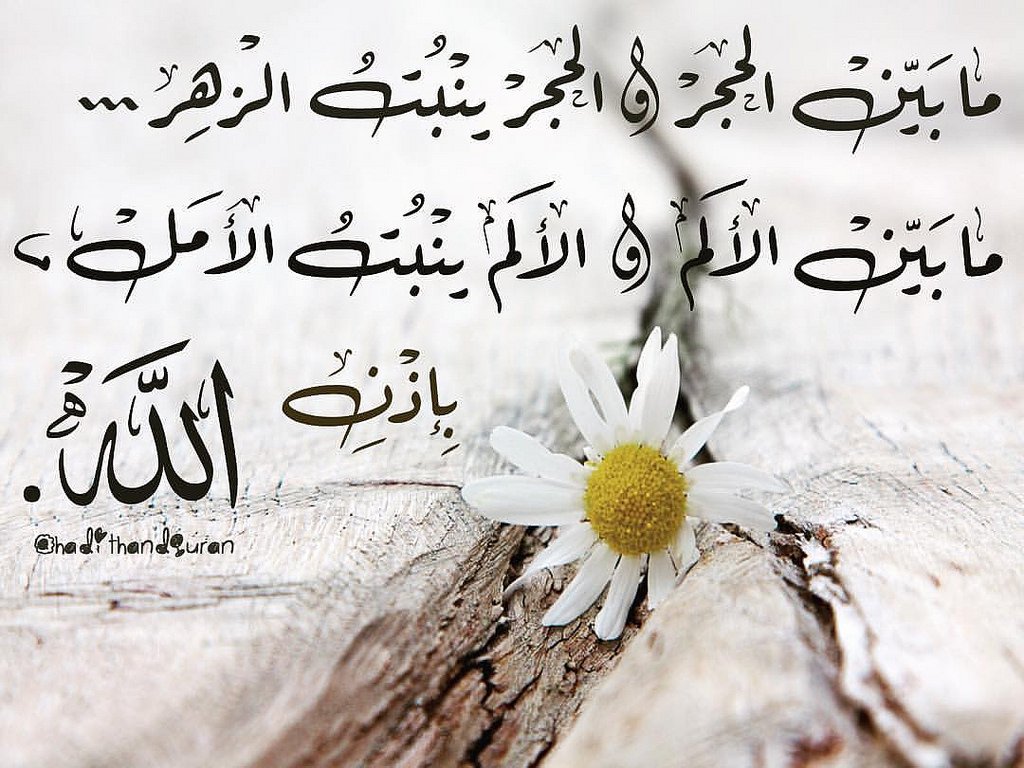 ما بَيّنْ الحجرْ و الحجرْ ينْبُتُ الزهِرْ ...
ما بَيّنْ الأَلَمْ و الأَلَمْ ينْبُتُ الأَمَلْ ،
بِإذْنِ اللَّهْ .
@hadithandQuran